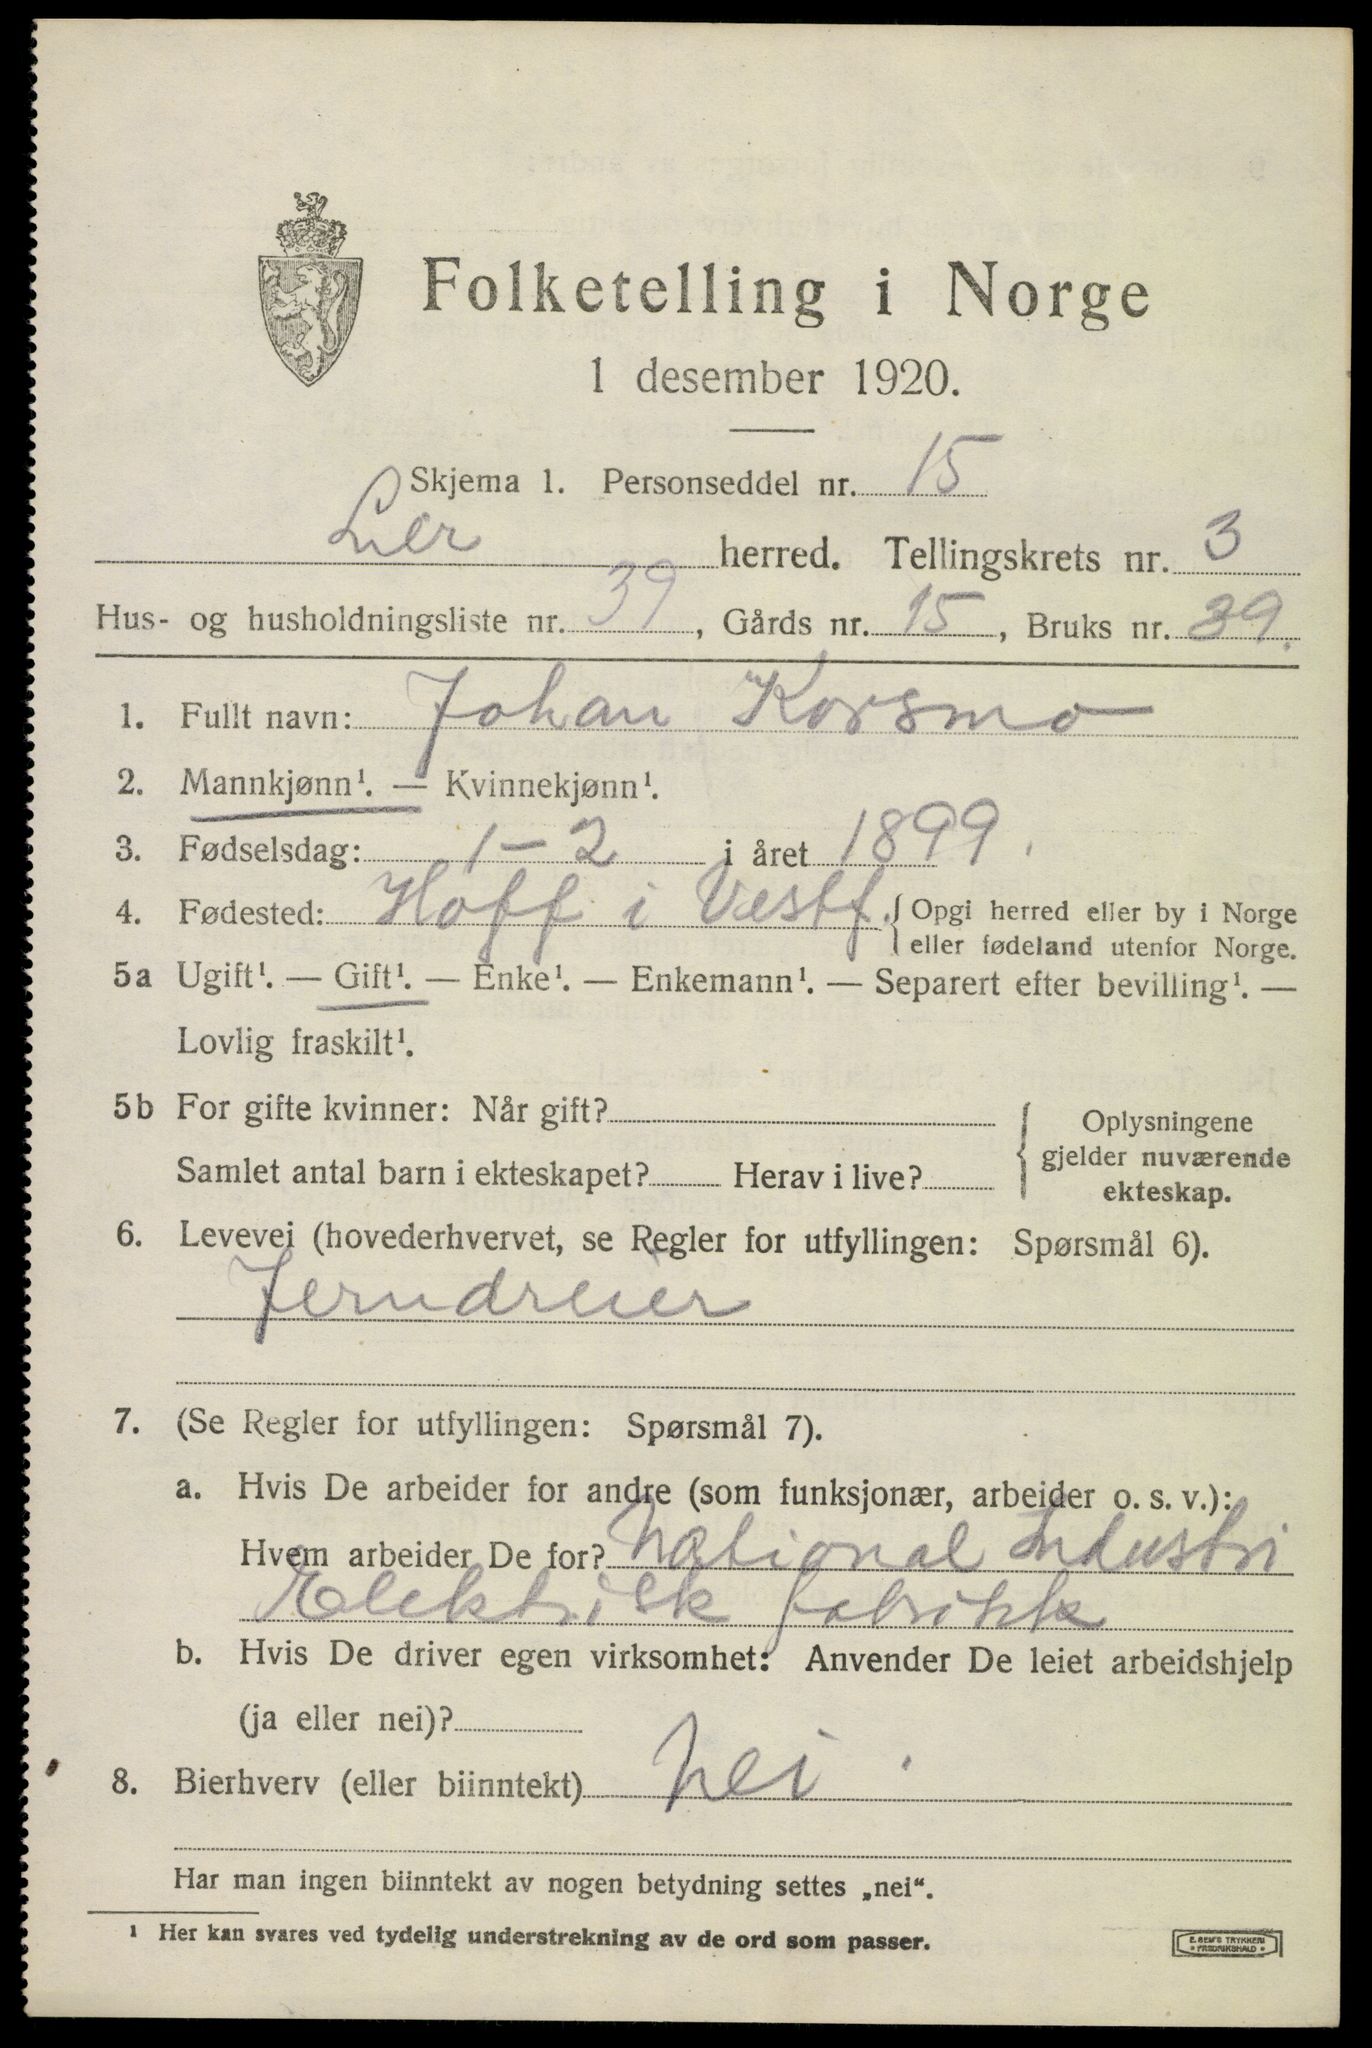 Folketelling i Norge
1 desember 1920.
Skjema 1. Personseddel nr. 15
Lier herred. Tellingskrets nr. 3
Hus- og husholdningsliste nr. 39, Gårds nr. 15, Bruks nr. 39.
1. Fullt navn: Johan Korsmo
2. Mannkjønn¹. — Kvinnekjønn¹.
3. Fødselsdag: 1-2 i året 1899.
4. Fødested: Hoff i Vestf. { Opgi herred eller by i Norge
eller fødeland utenfor Norge.
5a Ugift¹. — Gift¹. — Enke¹. — Enkemann¹. — Separert efter bevilling¹. —
Lovlig fraskilt¹.
5b For gifte kvinner: Når gift?
Samlet antal barn i ekteskapet? Herav i live?
{ Oplysningene
gjelder nuværende
ekteskap.
6. Levevei (hovederhvervet, se Regler for utfyllingen: Spørsmål 6).
Jerndreier
7. (Se Regler for utfyllingen: Spørsmål 7).
a. Hvis De arbeider for andre (som funksjonær, arbeider o. s. v.):
Hvem arbeider De for? National Industri
Elektrisk fabrikk
b. Hvis De driver egen virksomhet: Anvender De leiet arbeidshjelp
(ja eller nei)?
8. Bierhverv (eller biinntekt) Nei.
Har man ingen biinntekt av nogen betydning settes „nei“.
¹ Her kan svares ved tydelig understrekning av de ord som passer.
E. SEM'S TRYKKERI
• FREDRIKSHALD •